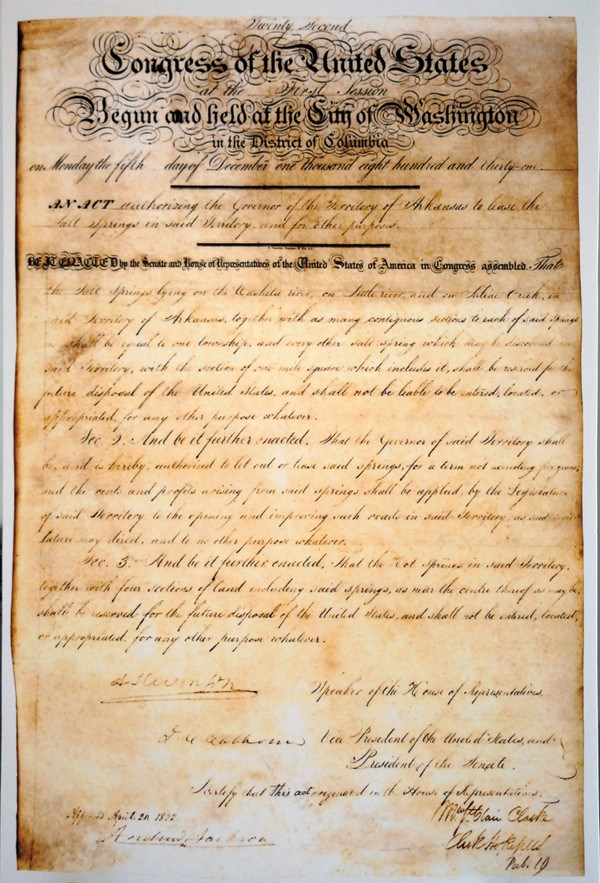 Twenty Second
Congress of the United States
at the First Session
Begun and held at the City of Washington
in the District of Columbia
on Monday the fifth day of December one thousand eight hundred and thirty-one.
AN ACT authorizing the Governor of the Territory of Arkansas to lease the
salt springs in said Territory, and for other purposes.
BE IT ENACTED by the Senate and House of Representatives of the United States of America in Congress assembled. That
the Salt Springs lying on the Washita river, on Little river, and on Saline Creek, in
said Territory of Arkansas, together with as many contiguous sections to each of said Springs
shall be equal to one township, and every other salt spring which may be discovered in
said Territory, with the section of one mile square which includes it, shall be reserved for the
future disposal of the United States, and shall not be liable to be entered, located, or
appropriated, for any other purpose whatever.
Sec. 2. And be it further enacted, That the Governor of said Territory shall
be, and is hereby, authorized to let out or lease said springs, for a term not exceeding
and the rents and profits arising from said springs shall be applied, by the Legislature
of said Territory to the opening and improving such roads in said Territory, as said
lature may direct, and to no other purpose whatever.
Sec. 3. And be it further enacted, That the Hot Springs in said Territory,
together with four sections of land including said springs, as near the centre thereof as may be,
shall be reserved for the future disposal of the United States, and shall not be entered, located,
or appropriated, for any other purpose whatever.
A Stevenson
Speaker of the House of Representatives.
J. C. Calhoun Vice President of the United States, and
President of the Senate.
I certify that this act originated in the House of Representatives.
Approved April 20. 1832. M. St. Clair Clarke
Andrew Jackson Clerk Ho. Reps.
Pub. 19